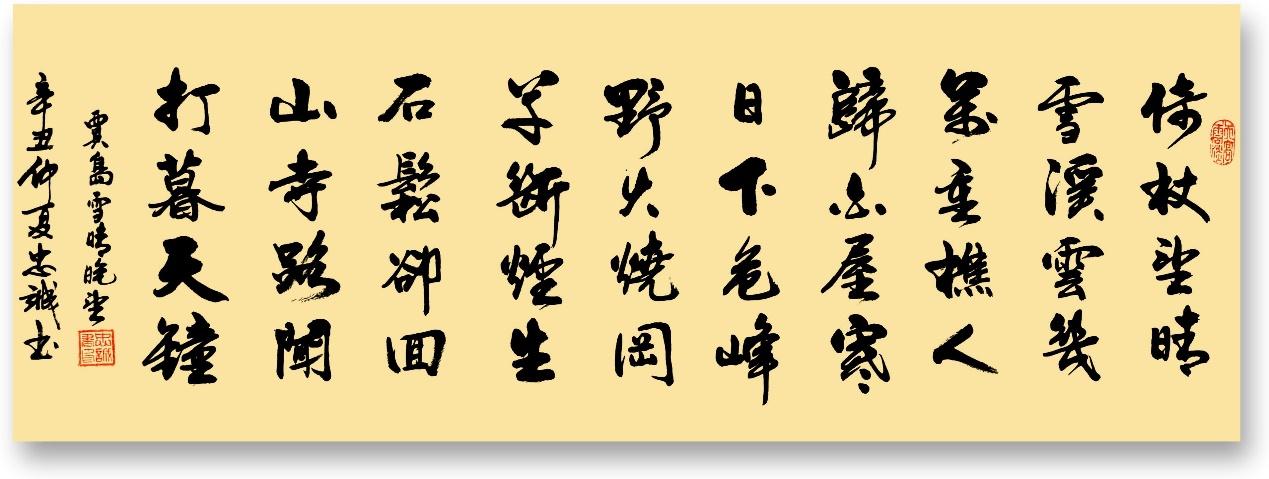 倚杖望晴
雪溪雲幾
萬重樵人
歸白屋寒
日下危峰
野火燒岡
草斷煙生
石鬆卻回
山寺路聞
打暮天鐘
賈島雪晴晚望
辛丑仲夏忠誠书